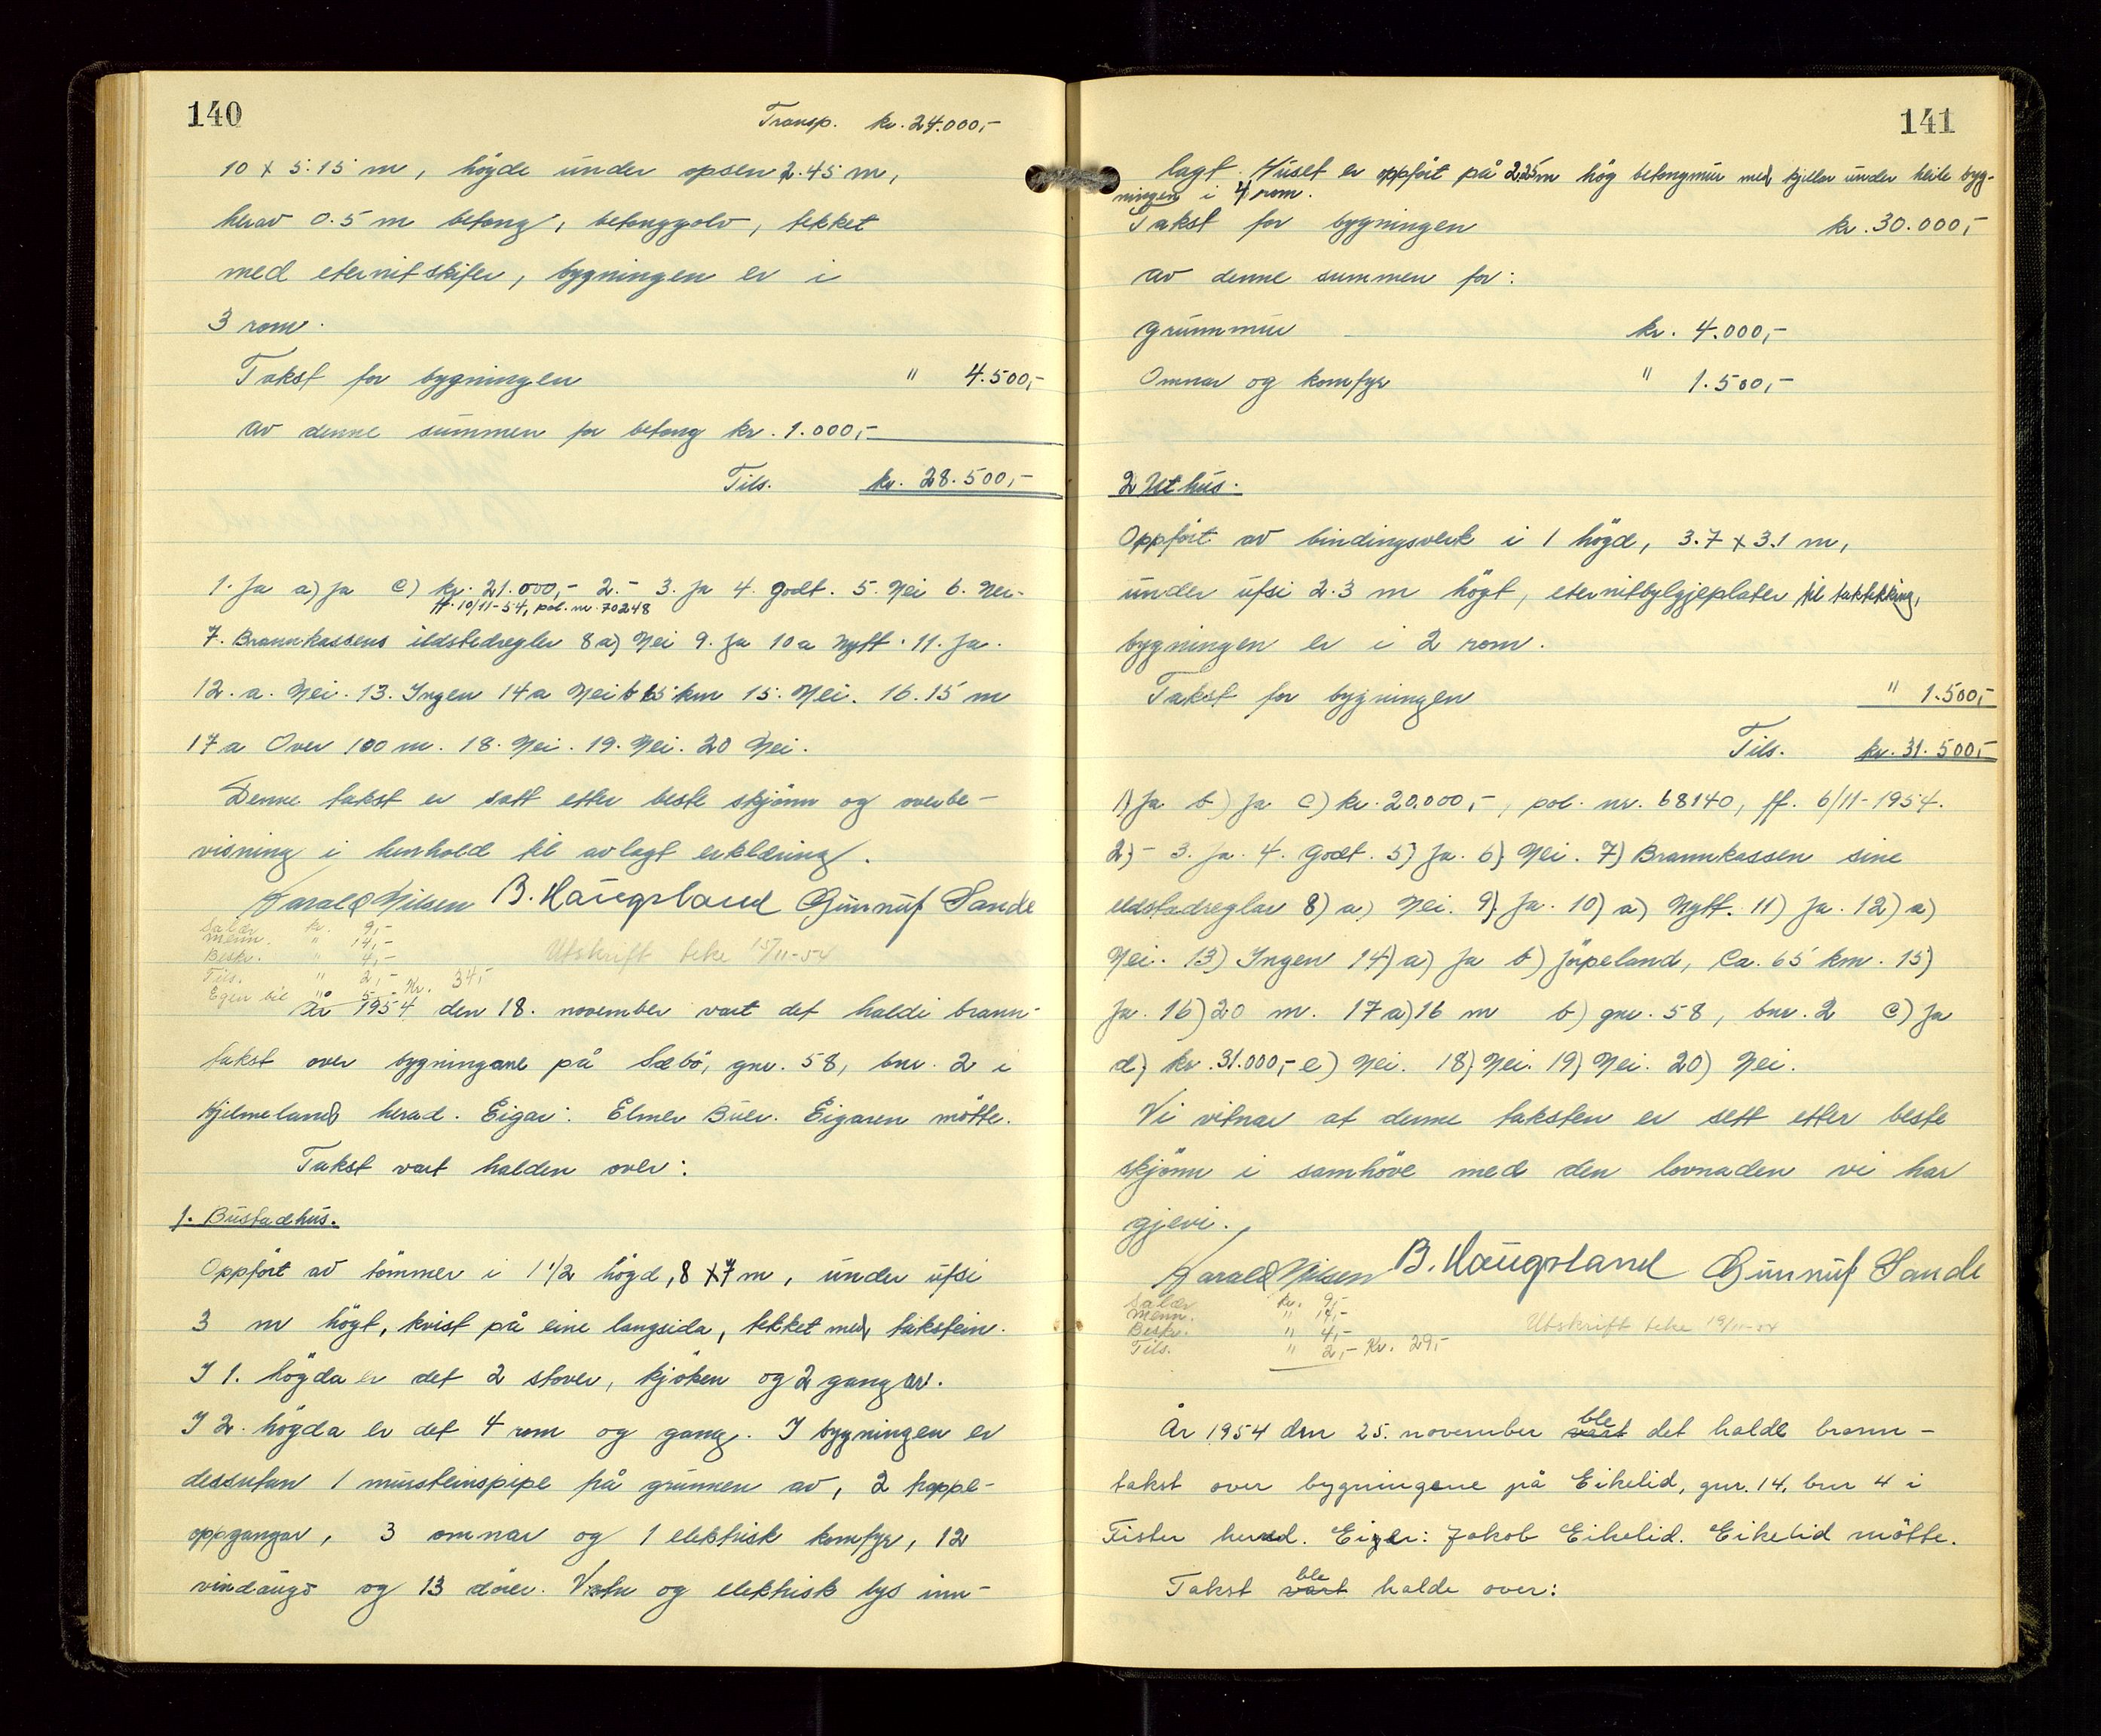 140
Transp. kr. 24.000,-
10 x 5.15 m, högde under opsen 2.45 m,
herav 0.5 m betong, betonggolv, tekket
med eternitskifer, bygningen er i
3 rom.
Takst for bygningen " 4.500,-
Av denne summen for betong kr. 1.000,-
Tils. kr. 28.500,-
1. Ja a) Ja c) kr. 21.000,- 2.- 3. Ja 4. Godt. 5. Nei 6. Nei.
ff. 10/11-54, pol. nr. 70248
7. Brannkassens ildstedregler 8a) Nei 9. Ja 10 a Nytt. 11. Ja.
12. a. Nei. 13. Ingen 14a Nei b 65 km 15. Nei. 16. 15 m
17a Over 100 m. 18. Nei. 19. Nei. 20 Nei.
Denne takst er satt etter beste skjönn og overbe-
visning i henhold til avlagt erklæring.
Harald Nilsen B. Haugsland Gunnuf Sande
Salær kr. 9,-
Menn. " 14,-
Beskr. " 4,- Utskrift teke 15/11-54
Tils. " 2,-
Egen bil " 5,- Kr. 34,-
År 1954 den 18. november vart det haldi brann-
takst over bygningane på Sæbö, gnr. 58, bnr. 2 i
Hjelmeland herad. Eigar: Elmer Buer. Eigaren mötte.
Takst vart halden over:
1. Bustadhus.
Oppfört av tömmer i 1 1/2 högd, 8 x 7 m, under ufsi
3 m högt, kvist på eine langsida, tekket med takstein.
I 1. högda er det 2 stover, kjöken og 2 gangar.
I 2. högda er det 4 rom og gang. I bygningen er
dessutan 1 mursteinspipe frå grunnen av, 2 trappe-
oppgangar, 3 omnar og 1 elektrisk komfyr, 12
vindaugo og 13 dörer. Vatn og elektrisk lys inn-
141
lagt. Huset er oppfört på 2.25 m hög betongmur med kjellar under heile byg-
ningen i 4 rom.
Takst for bygningen kr. 30.000,-
Av denne summen for:
Grunnmur kr. 4.000,-
Omnar og komfyr " 1.500,-
2 Uthus.
Oppfört av bindingsverk i 1 högd, 3.7 x 3.1 m,
under ufsi 2.3 m högt, eternitbylgjeplater til taktekking,
bygningen er i 2 rom.
Takst for bygningen " 1.500,-
Tils. kr. 31.500,-
1) Ja b) Ja c) kr. 20.000,-, pol. nr. 68140, ff. 6/11-1954.
2) - 3. Ja. 4. Godt. 5) Ja. 6) Nei. 7) Brannkassen sine
eldstadreglar 8) a) Nei. 9) Ja. 10) a) Nytt. 11) Ja. 12) a)
Nei. 13) Ingen 14) a) Ja b) Jörpeland, Ca. 65 km. 15)
Ja. 16) 20 m. 17a) 16 m b) gnr. 58, bnr. 2 c) Ja
d) kr. 31.000,- e) Nei. 18) Nei. 19) Nei. 20) Nei.
Vi vitnar at denne taksten er sett etter beste
skjönn i samhöve med den lovnaden vi har
gjevi.
Harald Nilsen B. Haugsland Gunnuf Sande
Salær kr. 9,-
Menn. " 14,-
Beskr. " 4,- Utskrift teke 19/11-54
Tils. " 2,- Kr. 29,-
År 1954 den 25. november vart ble det halde brann-
takst over bygningene på Eikelid, gnr. 14, bnr 4 i
Fister herad. Eiger: Jakob Eikelid. Eikelid mötte.
Takst vart ble halde over: